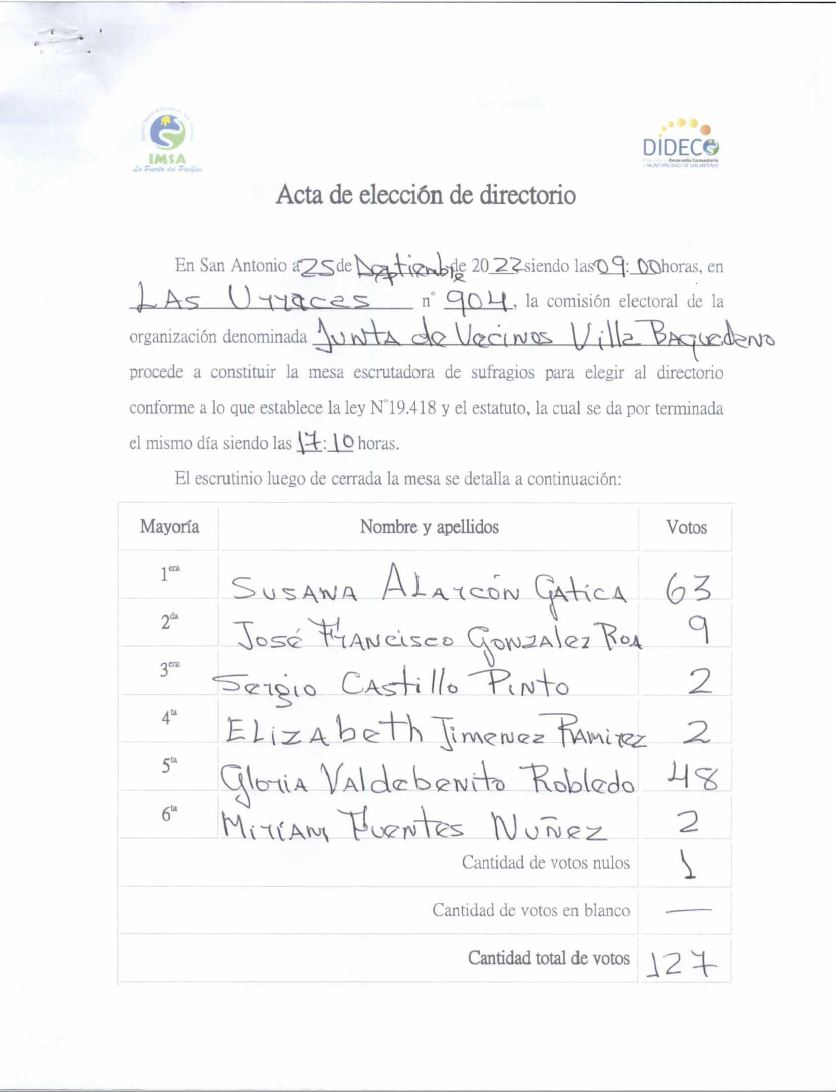 IMSA
La Puerta del Pacífico
DIDECO
Desarrollo Comunitario
I. MUNICIPALIDAD DE SAN ANTONIO
Acta de elección de directorio
En San Antonio a 25 de Septiembre de 2022 siendo las 09:00 horas, en
LAS Urraces n° 904, la comisión electoral de la
organización denominada Junta de Vecinos Villa Baquedano
procede a constituir la mesa escrutadora de sufragios para elegir al directorio
conforme a lo que establece la ley N°19.418 y el estatuto, la cual se da por terminada
el mismo día siendo las 17:10 horas.
El escrutinio luego de cerrada la mesa se detalla a continuación:
Mayoría Nombre y apellidos Votos
1era Susana Alarcón Gatica 63
2da José Francisco Gonzalez Roa 9
3era Sergio Castillo Pinto 2
4ta Elizabeth Jimenez Ramirez 2
5ta Gloria Valdebenito Robledo 48
6ta Miriam Fuentes Nuñez 2
Cantidad de votos nulos 1
Cantidad de votos en blanco —
Cantidad total de votos 127